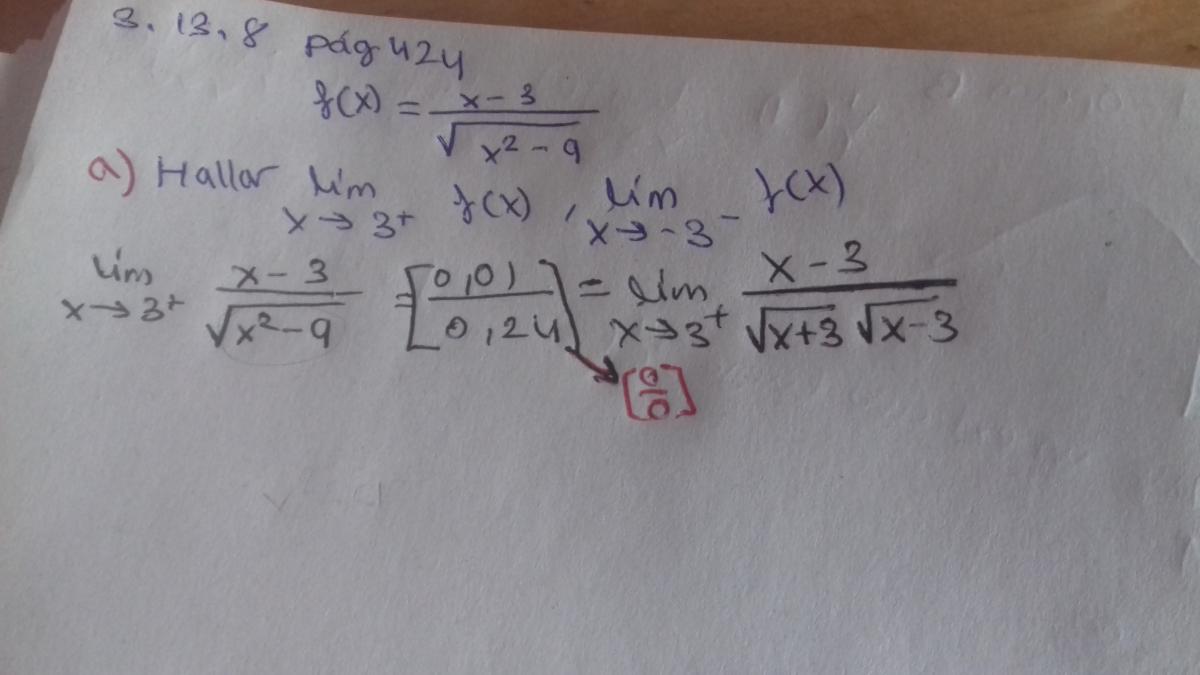 3.13.8 pág 424
f(x) = x-3 / √(x²-9)
a) Hallar lím x→3⁺ f(x), lím x→-3⁻ f(x)
lím x→3⁺ x-3 / √(x²-9) = [0,01 / 0,24] = lím x→3⁺ x-3 / √(x+3) √(x-3)
[0/0]